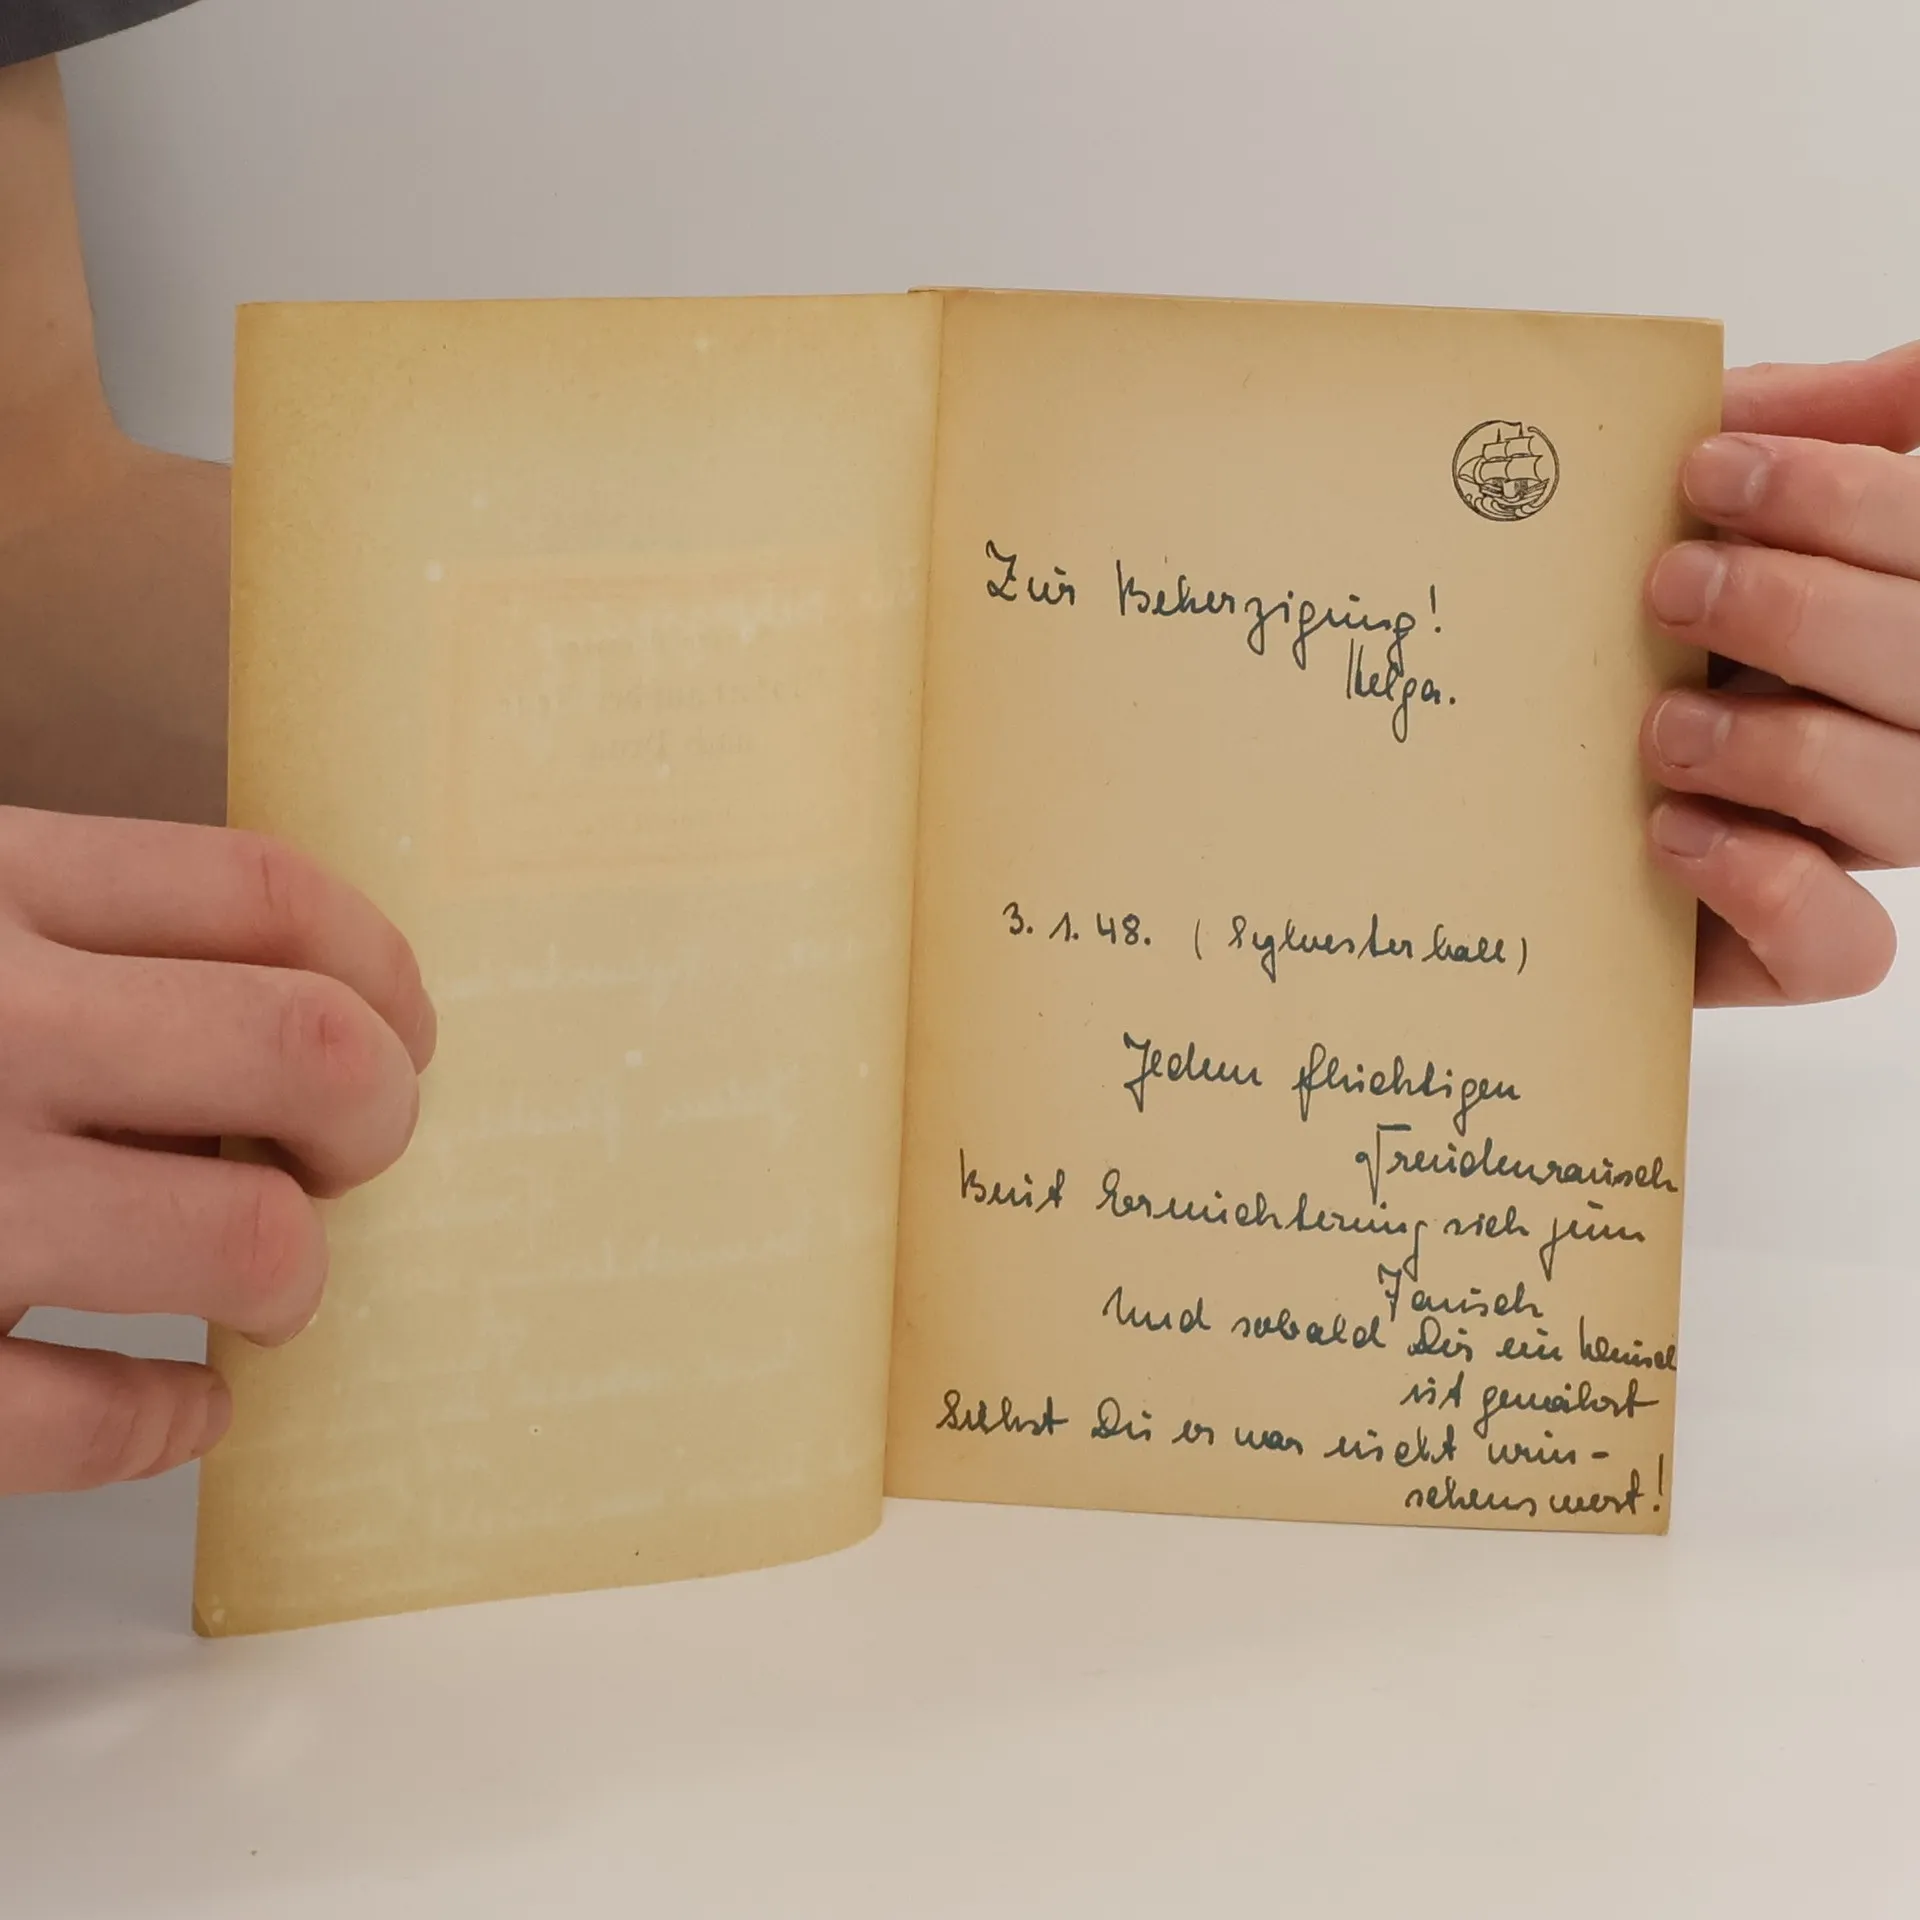 Zur Beherzigung!
Helga.
3. 1. 48. (Sylvesterball)
Jedem flüchtigen
Freudenrausch
Beut Ernüchterung sich zum
Tausch
Und sobald Dir ein Wunsch
ist gewährt
Selbst Du er war nicht wün-
schenswert!